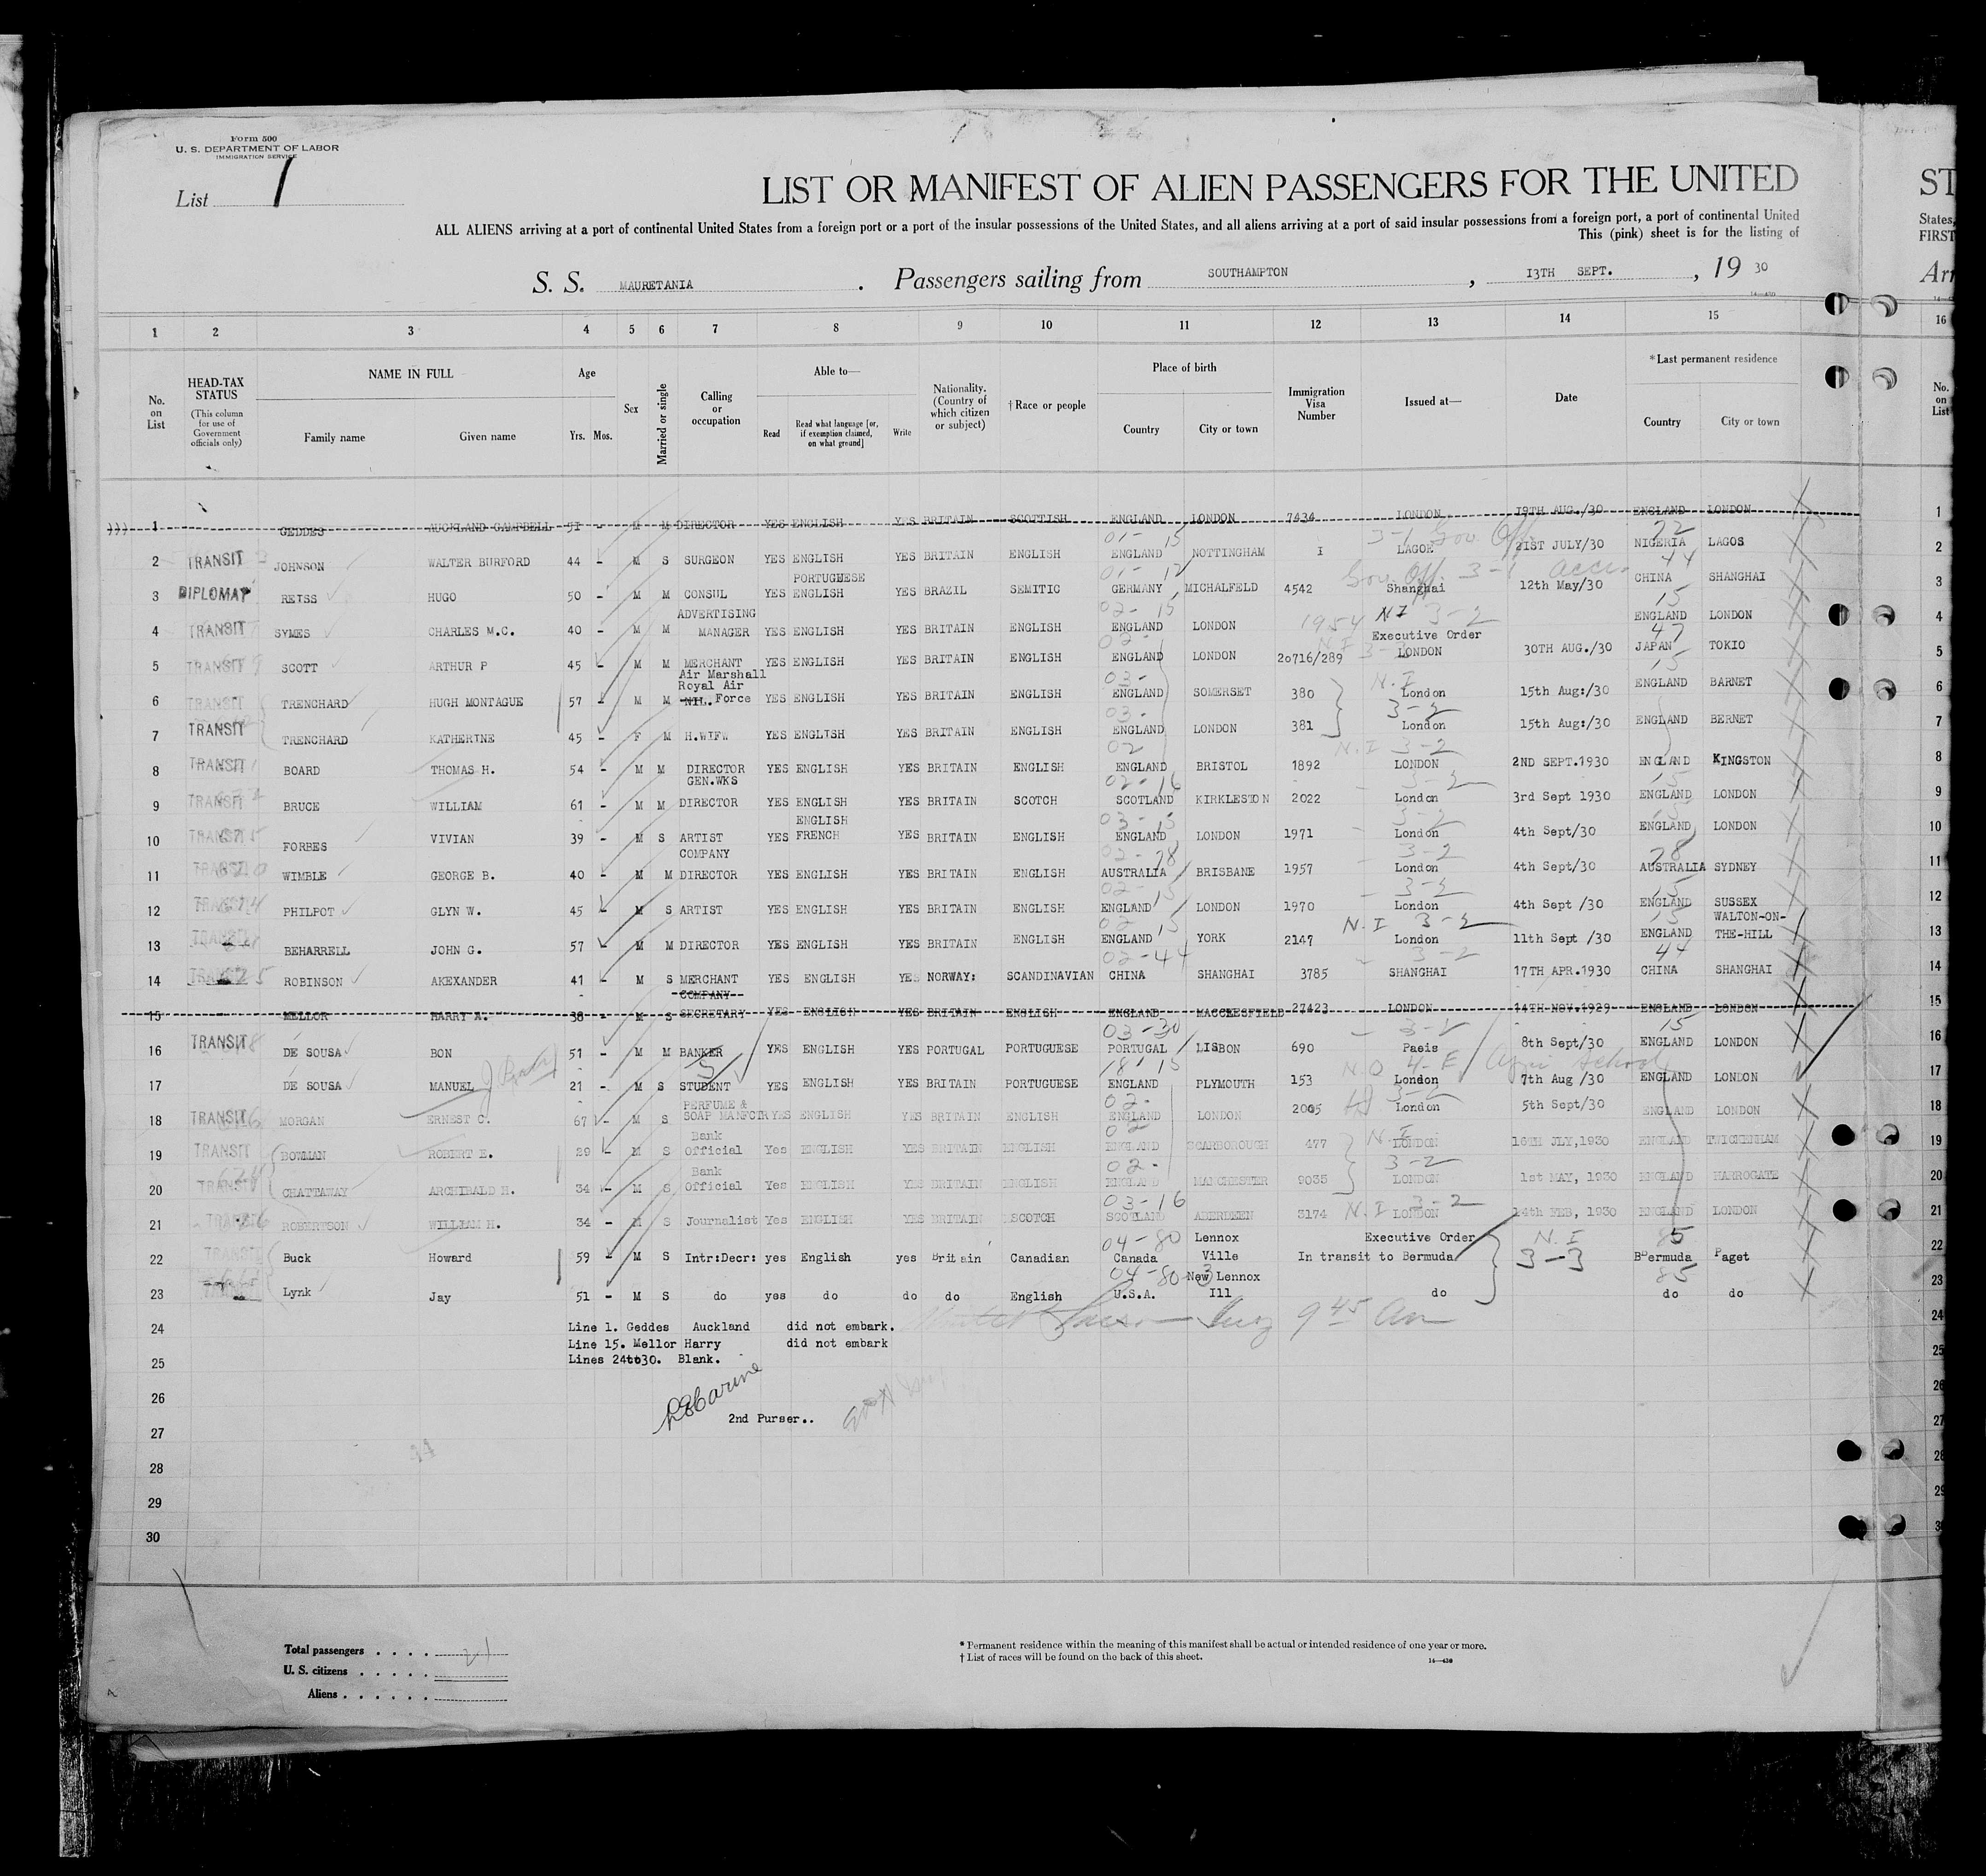 Form 500
U. S. DEPARTMENT OF LABOR
IMMIGRATION SERVICE
List 1
LIST OR MANIFEST OF ALIEN PASSENGERS FOR THE UNITED
ST
ALL ALIENS arriving at a port of continental United States from a foreign port or a port of the insular possessions of the United States, and all aliens arriving at a port of said insular possessions from a foreign port, a port of continental United
States,
This (pink) sheet is for the listing of
FIRST
S. S. MAURETANIA. Passengers sailing from SOUTHAMPTON, 13TH SEPT., 19 30
Arr
1 2 3 4 5 6 7 8 9 10 11 12 13 14 15 16
No. on List
HEAD-TAX STATUS
(This column for use of Government officials only)
NAME IN FULL
Family name Given name
Age
Yrs. Mos.
Sex
Married or single
Calling or occupation
Able to—
Read
Read what language [or, if exemption claimed, on what ground]
Write
Nationality. (Country of which citizen or subject)
† Race or people
Place of birth
Country City or town
Immigration Visa Number
Issued at—
Date
*Last permanent residence
Country City or town
No. on List
1 GEDDES AUCKLAND CAMPBELL 51 - M M DIRECTOR YES ENGLISH YES BRITAIN SCOTTISH ENGLAND LONDON 7434 LONDON 19TH AUG./30 ENGLAND LONDON 1
01- 15 3-1 Gov. Off 22
2 TRANSIT JOHNSON WALTER BURFORD 44 - M S SURGEON YES ENGLISH YES BRITAIN ENGLISH ENGLAND NOTTINGHAM I LAGOE 21ST JULY/30 NIGERIA LAGOS 2
PORTUGUESE 01- 12 Gov. Off. 3-1 44
3 DIPLOMAT REISS HUGO 50 - M M CONSUL YES ENGLISH YES BRAZIL SEMITIC GERMANY MICHALFELD 4542 Shanghai 12th May/30 CHINA SHANGHAI 3
ADVERTISING 02- 15 1954 NI 3-2 15
4 TRANSIT SYMES CHARLES M.C. 40 - M M MANAGER YES ENGLISH YES BRITAIN ENGLISH ENGLAND LONDON ENGLAND LONDON 4
02- N.I Executive Order 47
5 TRANSIT SCOTT ARTHUR P 45 M M MERCHANT YES ENGLISH YES BRITAIN ENGLISH ENGLAND LONDON 20716/289 LONDON 30TH AUG./30 JAPAN TOKIO 5
Air Marshall
Royal Air 03- N.I 15
6 TRANSIT TRENCHARD HUGH MONTAGUE 57 - M M NIL. Force YES ENGLISH YES BRITAIN ENGLISH ENGLAND SOMERSET 380 London 15th Aug:/30 ENGLAND BARNET 6
03- 3-2
7 TRANSIT TRENCHARD KATHERINE 45 - F M H.WIFW YES ENGLISH YES BRITAIN ENGLISH ENGLAND LONDON 381 London 15th Aug:/30 ENGLAND BERNET 7
02 N.I 3-2
8 TRANSIT BOARD THOMAS H. 54 - M M DIRECTOR YES ENGLISH YES BRITAIN ENGLISH ENGLAND BRISTOL 1892 LONDON 2ND SEPT.1930 ENGLAND KINGSTON 8
GEN.WKS 02-16 3-2 15
9 TRANSIT BRUCE WILLIAM 61 - M M DIRECTOR YES ENGLISH YES BRITAIN SCOTCH SCOTLAND KIRKLESTON 2022 London 3rd Sept 1930 ENGLAND LONDON 9
ENGLISH 03-15 3-2
10 TRANSIT FORBES VIVIAN 39 - M S ARTIST YES FRENCH YES BRITAIN ENGLISH ENGLAND LONDON 1971 London 4th Sept/30 ENGLAND LONDON 10
COMPANY 02-78 3-2 78
11 TRANSIT WIMBLE GEORGE B. 40 - M M DIRECTOR YES ENGLISH YES BRITAIN ENGLISH AUSTRALIA BRISBANE 1957 London 4th Sept/30 AUSTRALIA SYDNEY 11
02- 15 3-2 15
12 TRANSIT PHILPOT GLYN W. 45 - M S ARTIST YES ENGLISH YES BRITAIN ENGLISH ENGLAND LONDON 1970 London 4th Sept /30 ENGLAND SUSSEX 12
02 15 N.I 3-2 15 WALTON-ON-
13 TRANSIT BEHARRELL JOHN G. 57 - M M DIRECTOR YES ENGLISH YES BRITAIN ENGLISH ENGLAND YORK 2147 London 11th Sept /30 ENGLAND THE-HILL 13
02-44 3-2 44
14 TRANSIT ROBINSON AKEXANDER 41 - M S MERCHANT YES ENGLISH YES NORWAY: SCANDINAVIAN CHINA SHANGHAI 3785 SHANGHAI 17TH APR.1930 CHINA SHANGHAI 14
COMPANY
15 MELLOR HARRY A. 38 - M S SECRETARY YES ENGLISH YES BRITAIN ENGLISH ENGLAND MACCLESFIELD 27423 LONDON 14TH NOV.1929 ENGLAND LONDON 15
03-30 3-2 15
16 TRANSIT DE SOUSA BON 51 - M M BANKER YES ENGLISH YES PORTUGAL PORTUGUESE PORTUGAL LISBON 690 Paeis 8th Sept/30 ENGLAND LONDON 16
18-15 N.O 4-E Agri School
17 DE SOUSA MANUEL 21 - M S STUDENT YES ENGLISH YES BRITAIN PORTUGUESE ENGLAND PLYMOUTH 153 London 7th Aug /30 ENGLAND LONDON 17
PERFUME & 02- 3-2
18 TRANSIT MORGAN ERNEST C. 67 - M S SOAP MANFCTR YES ENGLISH YES BRITAIN ENGLISH ENGLAND LONDON 2005 London 5th Sept/30 ENGLAND LONDON 18
Bank 02 N.I
19 TRANSIT BOWMAN ROBERT E. 29 - M S Official Yes ENGLISH YES BRITAIN ENGLISH ENGLAND SCARBOROUGH 477 LONDON 16TH JLY,1930 ENGLAND TWICKENHAM 19
624 Bank 02- 3-2
20 TRANSIT CHATTAWAY ARCHIBALD H. 34 - M S Official Yes ENGLISH YES BRITAIN ENGLISH ENGLAND MANCHESTER 9035 LONDON 1st MAY, 1930 ENGLAND HARROGATE 20
03-16
21 TRANSIT ROBERTSON WILLIAM H. 34 - M S Journalist Yes ENGLISH YES BRITAIN SCOTCH SCOTLAND ABERDEEN 3174 N.I LONDON 3-2 14th FEB, 1930 ENGLAND LONDON 21
04-80 Lennox Executive Order N.I 85
22 TRANSIT Buck Howard 59 - M S Intr:Decr: yes English yes Britain Canadian Canada Ville In transit to Bermuda 3-3 Bermuda Paget 22
04-80 New Lennox 85
23 Lynk Jay 51 - M S do yes do do do English U.S.A. Ill do do do 23
24 Line 1. Geddes Auckland did not embark. 9 45 Am 24
Line 15. Mellor Harry did not embark
25 Lines 24to30. Blank. 25
26 26
2nd Purser..
27 27
28 28
29 29
30
Total passengers . . . . 21
U. S. citizens . . . . .
Aliens . . . . . .
* Permanent residence within the meaning of this manifest shall be actual or intended residence of one year or more.
† List of races will be found on the back of this sheet.
14—430